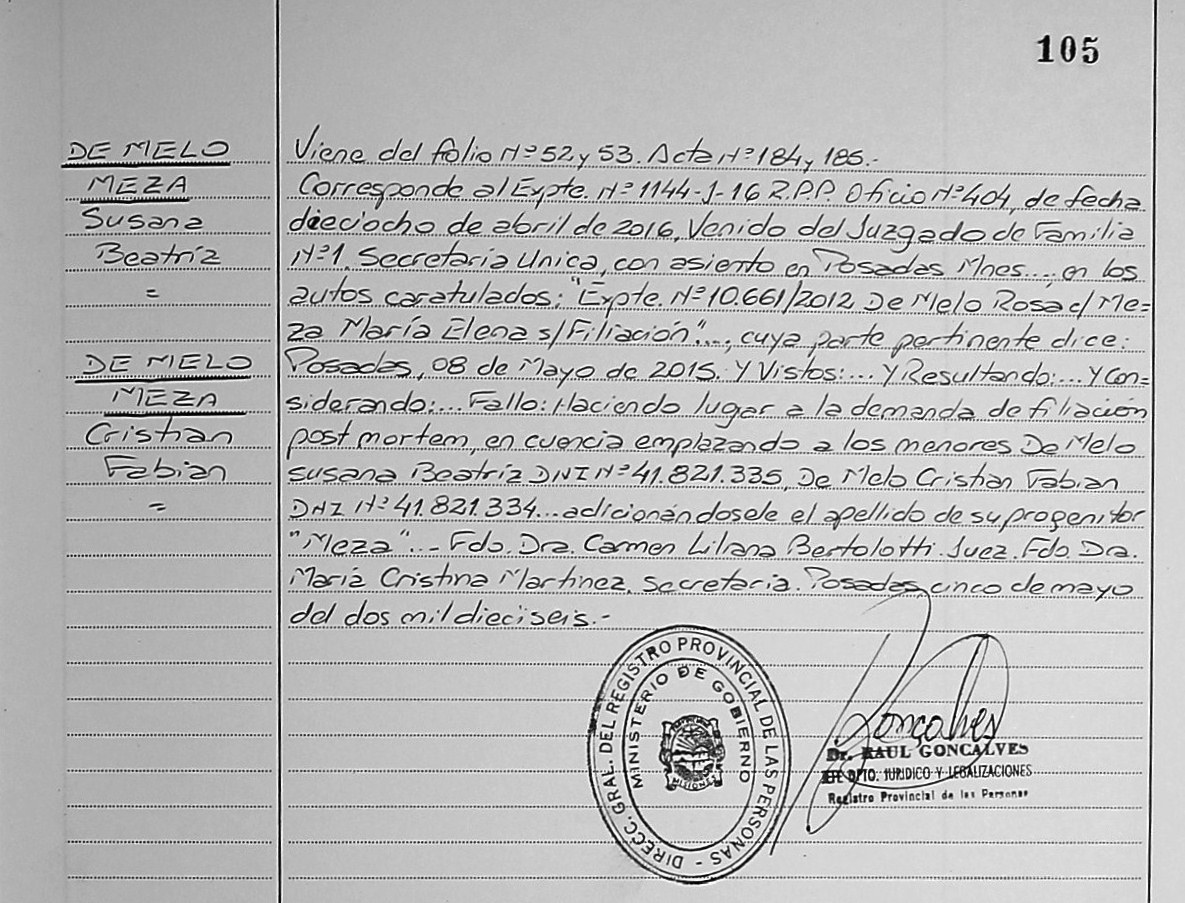 105
DE MELO
MEZA
Susana
Beatríz
=
DE MELO
MEZA
Cristian
Fabian
=
Viene del folio Nº 52 y 53. Acta Nº 184 y 185.-
Corresponde al Expte. Nº 1144-J-16 R.P.P. Oficio Nº 404, de fecha
dieciocho de abril de 2016, Venido del Juzgado de Familia
Nº1, Secretaria Unica, con asiento en Posadas Mnes..., en los
autos caratulados: "Expte. Nº 10.661/2012 De Melo Rosa c/ Me=
za María Elena s/Filiación"..., cuya parte pertinente dice:
Posadas, 08 de Mayo de 2015. Y Vistos:... Y Resultando:... Y Con=
siderando:... Fallo: Haciendo lugar a la demanda de filiación
post mortem, en cuencia emplazando a los menores De Melo
Susana Beatríz DNI Nº 41.821.335, De Melo Cristian Fabian
DNI Nº 41.821.334... adicionándosele el apellido de su progenitor
"Meza"... Fdo. Dra. Carmen Liliana Bertolotti. Juez. Fdo. Dra.
María Cristina Martinez, Secretaria. Posadas, cinco de mayo
del dos mil dieciseis.-
DIRECC. GRAL. DEL REGISTRO PROVINCIAL DE LAS PERSONAS -
MINISTERIO DE GOBIERNO
MISIONES
Goncalves
Dr. RAUL GONCALVES
JEFE DPTO. JURIDICO Y LEGALIZACIONES
Registro Provincial de las Personas